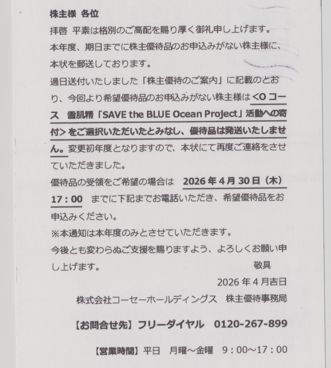 株主様 各位
拝啓 平素は格別のご高配を賜り厚く御礼申し上げます。
本年度、期日までに株主優待品のお申込みがない株主様に、
本状を郵送しております。
過日送付いたしました「株主優待のご案内」に記載のとお
り、今回より希望優待品のお申込みがない株主様は<Oコー
ス 雪肌精「SAVE the BLUE Ocean Project」活動への寄
付>をご選択いただいたとみなし、優待品は発送いたしませ
ん。変更初年度となりますので、本状にて再度ご連絡をさせ
ていただきました。
優待品の受領をご希望の場合は 2026年4月30日(木)
17:00 までに下記までお電話いただき、希望優待品をお
申込みください。
※本通知は本年度のみとさせていただきます。
今後とも変わらぬご支援を賜りますよう、よろしくお願い申
し上げます。 敬具
2026年4月吉日
株式会社コーセーホールディングス 株主優待事務局
【お問合せ先】フリーダイヤル 0120-267-899
【営業時間】平日 月曜~金曜 9:00~17:00